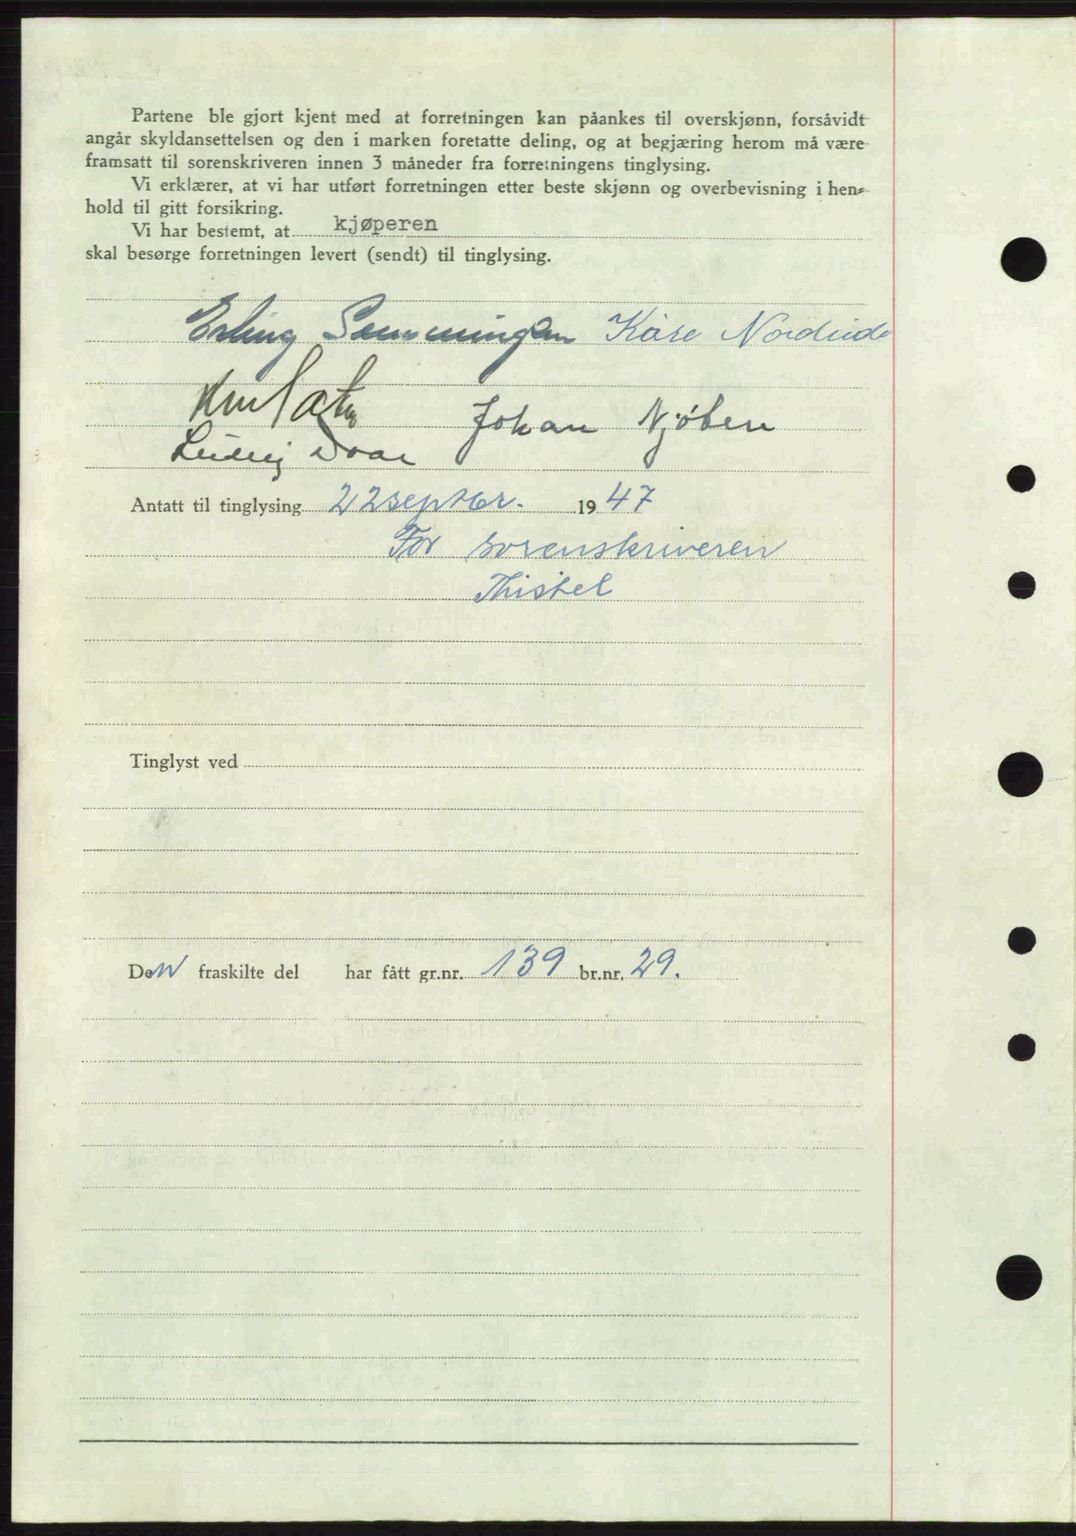 Partene ble gjort kjent med at forretningen kan påankes til overskjønn, forsåvidt
angår skyldansettelsen og den i marken foretatte deling, og at begjæring herom må være
framsatt til sorenskriveren innen 3 måneder fra forretningens tinglysing.
Vi erklærer, at vi har utført forretningen etter beste skjønn og overbevisning i hen-
hold til gitt forsikring.
Vi har bestemt, at kjøperen
skal besørge forretningen levert (sendt) til tinglysing.
Erling Kåre
Johan Njøben
Antatt til tinglysing 22 septbr. 1947
For sorenskriveren
Thistel
Tinglyst ved
Den fraskilte del har fått gr.nr. 139 br.nr. 29.